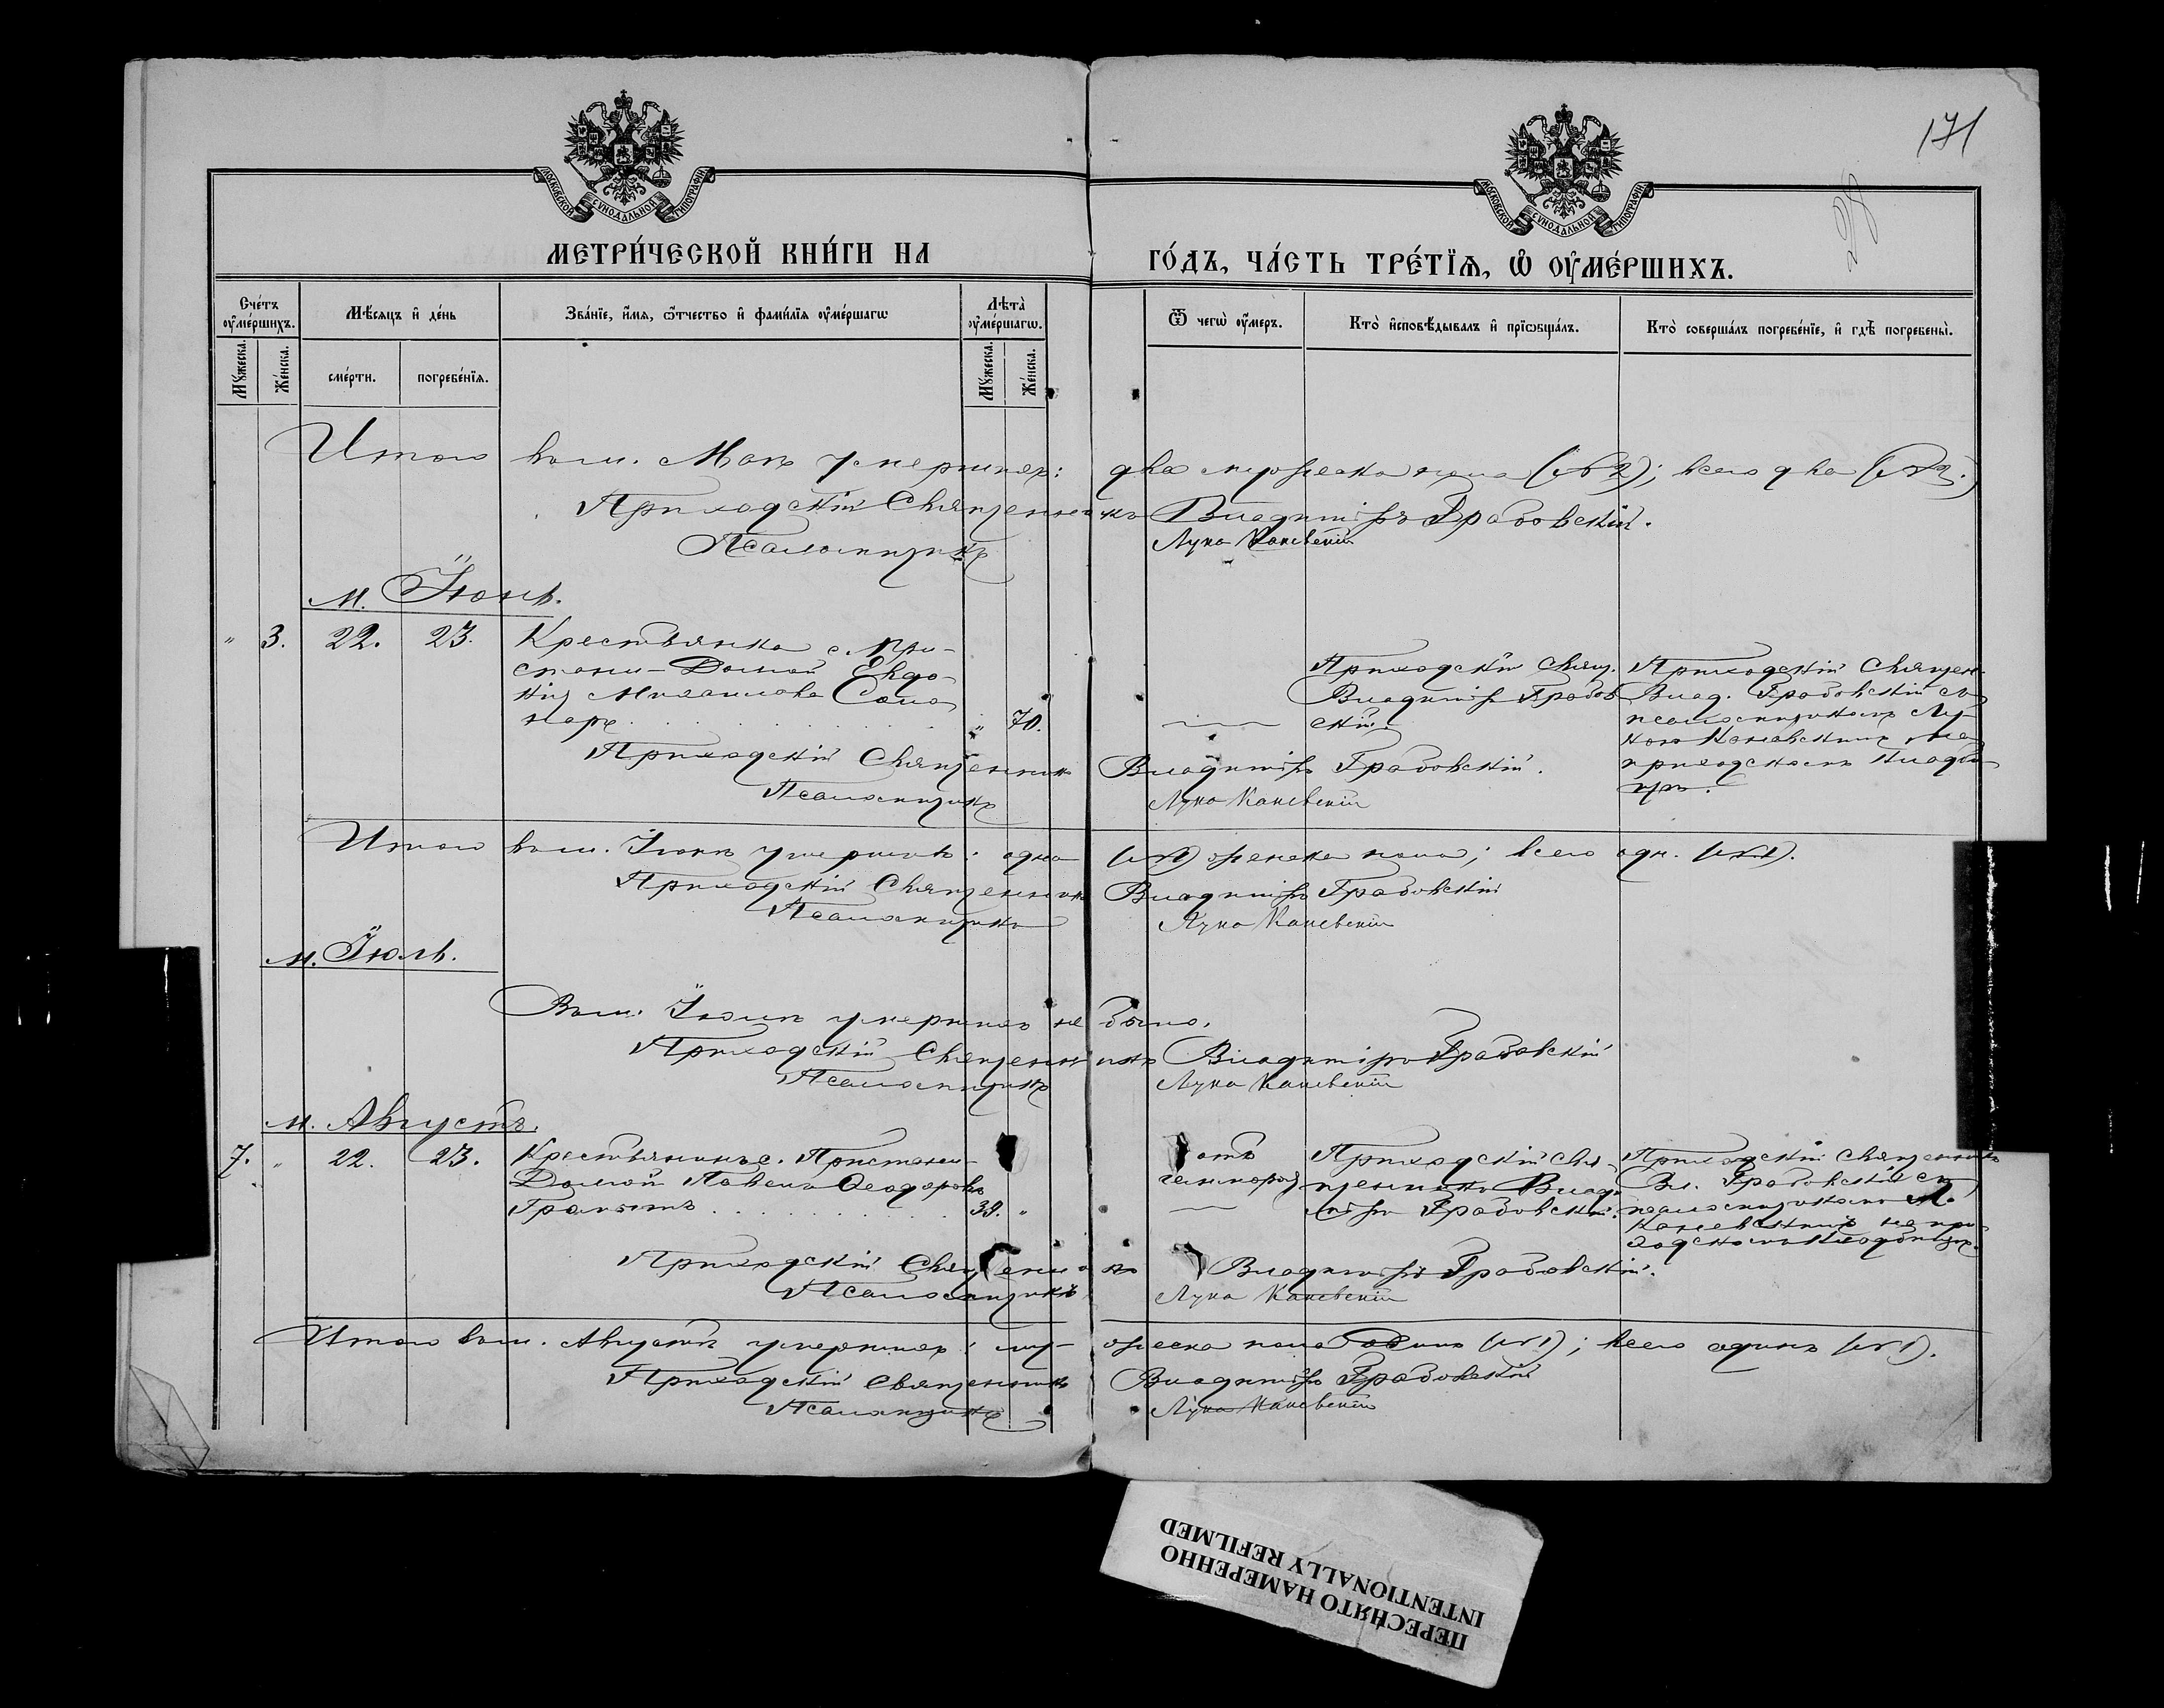 171
28
МОСКОВСКОЙ СѴНОДАЛЬНОЙ ТИПОГРАФІИ
МОСКОВСКОЙ СѴНОДАЛЬНОЙ ТИПОГРАФІИ
МЕТРИ́ЧЕСКОЙ КНИ́ГИ НА ГО́ДЪ, ЧА́СТЬ ТРЕ́ТЇѦ, Ѡ҆ ОУ҆МЕ́РШИХЪ.
Сче́тъ оу҆ме́ршихъ.
Мѣ́сяцъ и҆ де́нь
Зва́нїе, и҆́мѧ, ѻ҆́тчество и҆ фами́лїѧ оу҆ме́ршагѡ
Лѣта̀ оу҆ме́ршагѡ.
Ѿ чегѡ̀ оу҆́меръ.
Кто̀ и҆сповѣ́дывалъ и҆ прїѡбща́лъ.
Кто̀ соверша́лъ погребе́нїе, и҆ гдѣ̀ погребены̀.
Мꙋ́жеска. Же́нска.
сме́рти. погребе́нїѧ.
Мꙋ́жеска. Же́нска.
Итого въ м. Маѣ умершихъ: два мужеска пола (№ 2); всего два (№ 2.)
Приходскій Священникъ Владиміръ Грабовскій.
Псаломщикъ Лука Каневскій
м. Іюнь.
" 3. 22. 23. Крестьянка с. При-
стани-Долгой Евдо-
кія Михаилова Сома
" 70.
Приходскій Свящ.
Владиміръ Грабов-
скій
Приходскій Священ.
Влад. Грабовскій съ
псаломщикомъ Лу-
кою Каневскимъ на
приходскомъ кладби-
щѣ.
Приходскій Священникъ Владиміръ Грабовскій.
Псаломщикъ Лука Каневскій
Итого въ м. Іюнѣ умершихъ: одна (№1) женска пола; всего одн. (№1).
Приходскій Священникъ Владиміръ Грабовскій
Псаломщикъ Лука Каневскій
м. Іюль.
Въ м. Іюлѣ умершихъ не было.
Приходскій Священникъ Владиміръ Грабовскій
Псаломщикъ Лука Каневскій
м. Августъ.
7. " 22. 23. Крестьянинъ с. Пристани-
Долгой Павелъ Ѳеодоровъ
39. "
отъ
Приходскій Свя-
щенникъ Влади-
міръ Грабовскій.
Приходскій Священникъ
Вл. Грабовскій съ
псаломщикомъ Л.
Каневскимъ на при-
ходскомъ кладбищѣ.
Приходскій Священникъ Владиміръ Грабовскій.
Псаломщикъ Лука Каневскій
Итого въ м. Августѣ умершихъ: му- жеска пола одинъ (№1); всего одинъ (№1).
Приходскій Священникъ Владиміръ Грабовскій
Псаломщикъ Лука Каневскій
ПЕРЕСНЯТО НАМЕРЕННО
INTENTIONALLY REFILMED